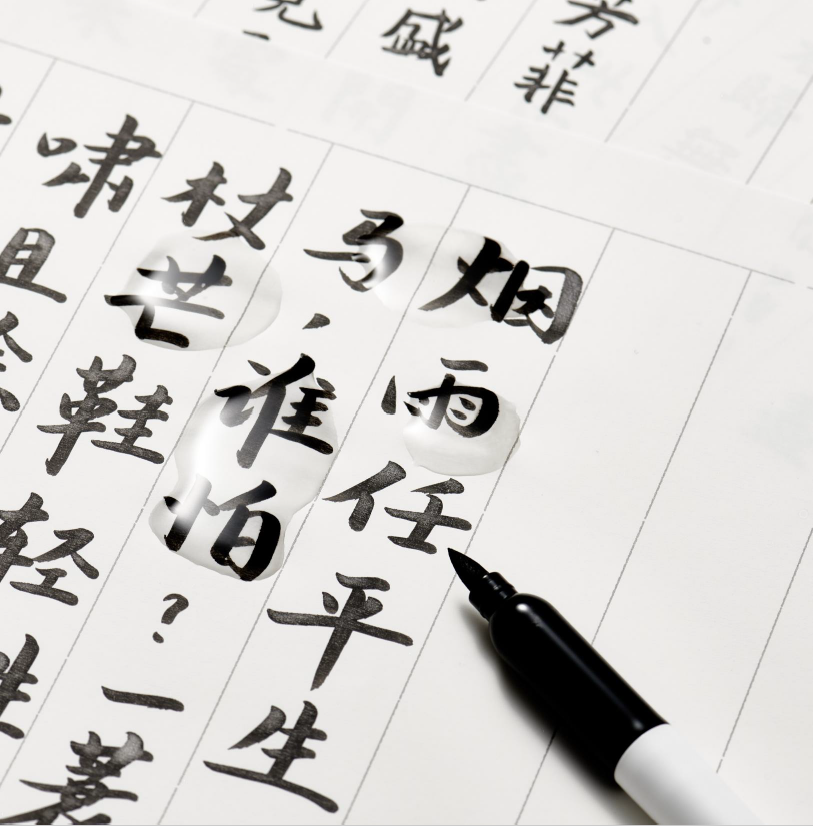 芳菲
盛
烟雨任平生
马，谁怕？一蓑
杖芒鞋轻胜
啸且徐